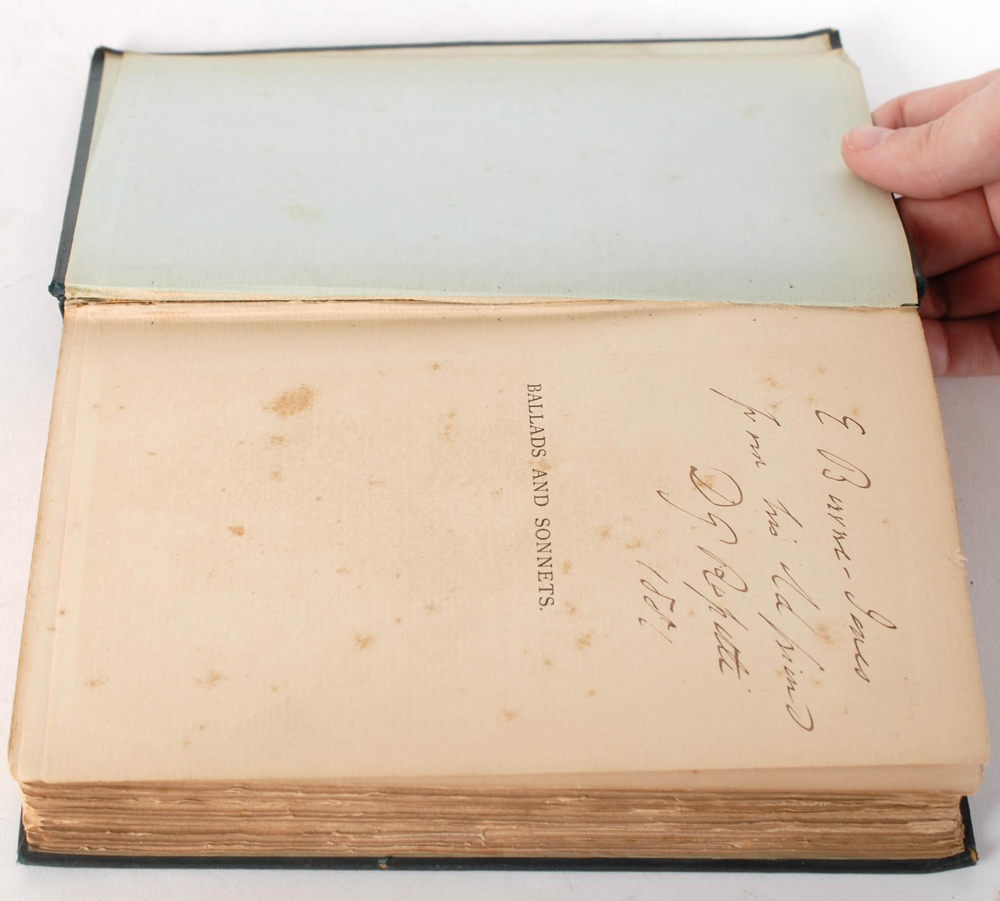 E Burne-Jones
from his old friend
D G Rossetti
1881
BALLADS AND SONNETS.